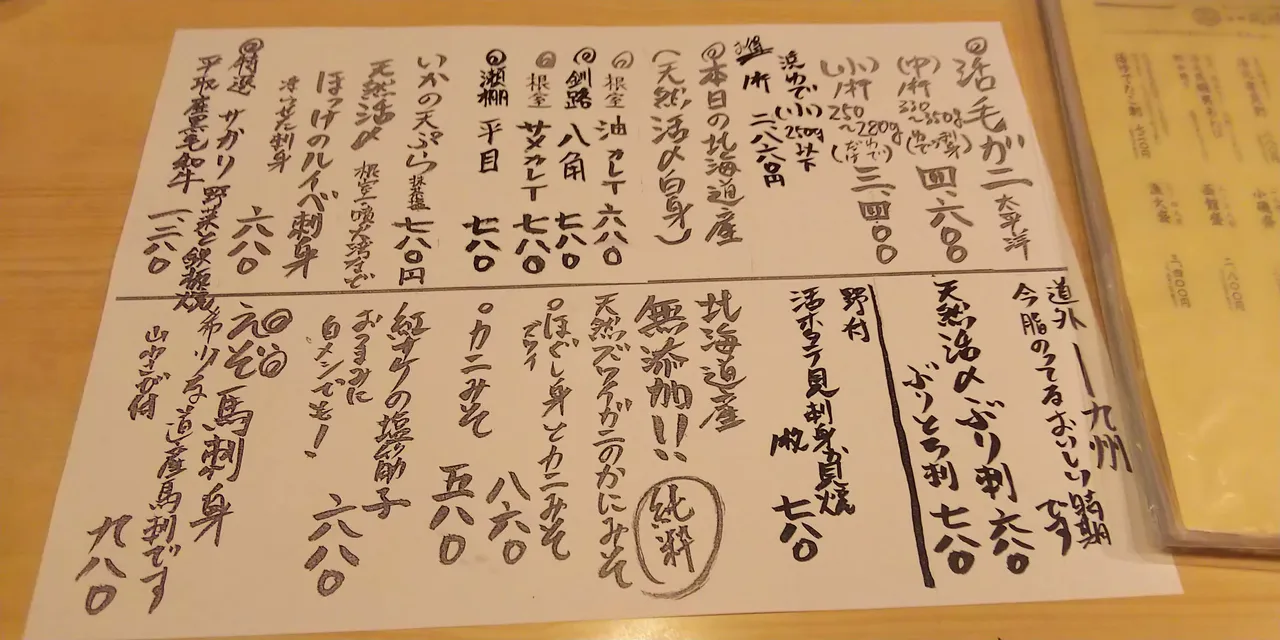 ◎活毛ガニ 太平洋
(中)1杯 330〜350g (ゆで・刺身) 四、六〇〇
(小)1杯 250〜280g (ゆでだけ) 三、四〇〇
浜ゆで(小)250g以下
1杯 二、八六〇円
◎本日の北海道産
(天然、活〆白身)
◎根室 油カレー 六八〇
◎釧路 八角 七八〇
◎根室 サメカレー 七八〇
◎瀬棚 平目 七八〇
いかの天ぷら 抹茶塩 七八〇円
天然活〆
ほっけのルイベ刺身 六八〇
凍らせた刺身
◎特選 サガリ 野菜と鉄板焼 一、二八〇
平取産黒毛和牛
道外ー九州
今脂のってるおいしい時期です
天然活〆ぶり刺 六八〇
ぶりとろ刺 七八〇
野付
活ホタテ貝刺身か貝焼
1枚 七八〇
北海道産
無添加!! 純粋
天然ズワイガニのかにみそ
○ほぐし身とカニみそ 八六〇
ズワイ
○カニみそ 五八〇
紅サケの塩筋子 六八〇
おつまみに
白メシでも!
◎◎えぞ馬刺身 九八〇
希少な道産馬刺です
山わさび付